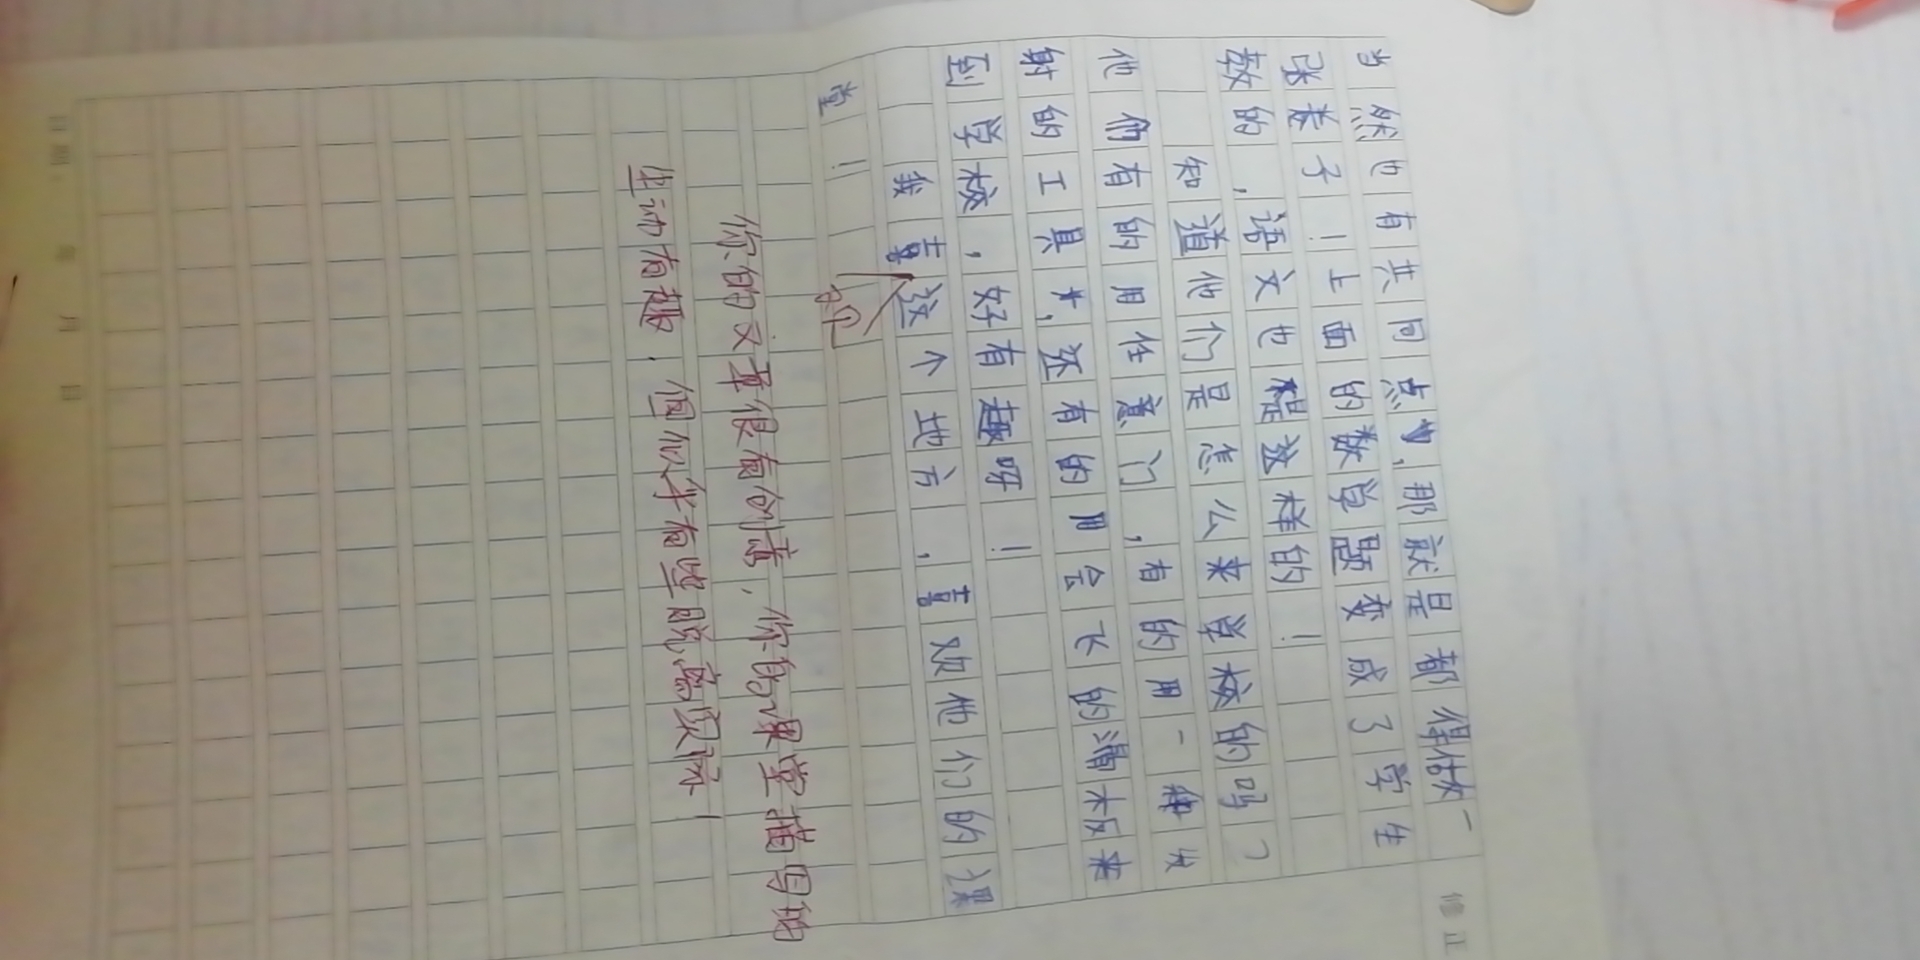 当然也有共同点,那就是都得做一
张卷子!上面的数学题变成了学生
教的,语文也是这样的!
知道他们是怎么来学校的吗?
他们有的用任意门,有的用一种发
射的工具,还有的用会飞的滑板来
到学校,好有趣呀!
我喜这个地方,喜欢他们的课
堂!
欢
你的文章很有创意,你的课堂描写的
生动有趣,但似乎有些脱离实际!
修正
日期: 年 月 日